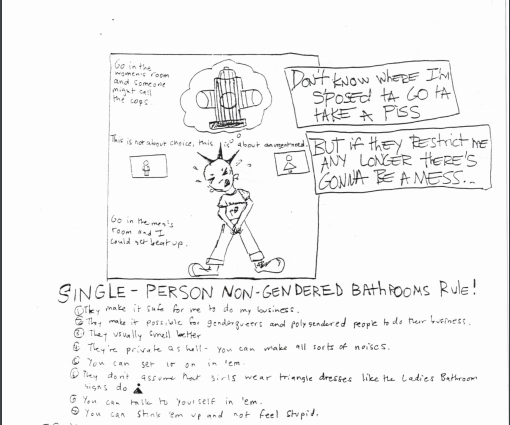 Go in the
women's room
and someone
might call
the cops
DON'T KNOW WHERE I'M
SPOSED TA GO TA
TAKE A PISS
This is not about choice, this is about an urgent need.
BUT if they Restrict me
ANY LONGER THERE'S
GONNA BE A MESS...
Go in the men's
room and I
could get beat up.
SINGLE-PERSON NON-GENDERED BATHROOMS RULE!
① They make it safe for me to do my business.
② They make it possible for genderqueers and polygendered people to do their business.
③ They usually smell better
④ They're private as hell - you can make all sorts of noises.
⑤ You can get it on in 'em.
⑥ They don't assume that girls wear triangle dresses like the Ladies Bathroom
signs do
⑦ You can talk to yourself in 'em.
⑧ You can stink 'em up and not feel stupid.